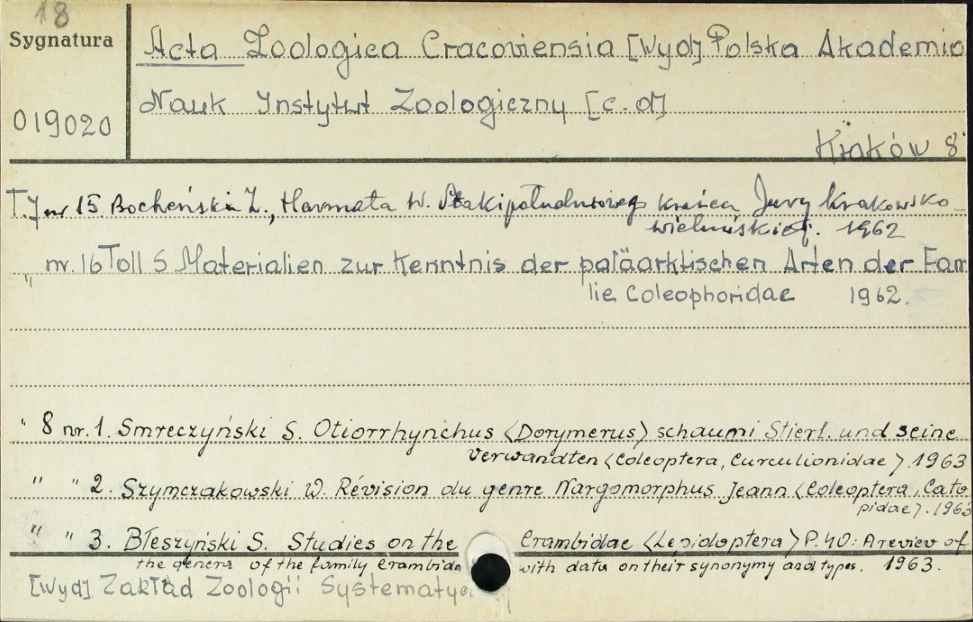 18
Sygnatura
019020
Acta Zoologica Cracoviensia [Wyd] Polska Akademia
Nauk Instytut Zoologiczny [c.d]
Kraków 8°
T.7 nr 15 Bocheński Z., Harmata W. Ptaki południowego krańca Jury Krakowsko-
wieluńskiej. 1962
" nr. 16 Toll S Materialien zur Kenntnis der paläarktischen Arten der Fam
lie Coleophoridae 1962.
" 8 nr. 1. Smreczyński S. Otiorrhynchus <Dorymerus> schaumi Stierl. und seine
Verwandten <Coleoptera, Curculionidae>. 1963
" " 2. Szymczakowski W. Révision du genre Nargomorphus Jeann <Coleoptera, Cato
pidae>. 1963
" " 3. Błeszyński S. Studies on the Crambidae <Lepidoptera> P. 40: A reviev of
the genera of the family Crambidae with data on their synonymy and types. 1963.
[Wyd] Zakład Zoologii